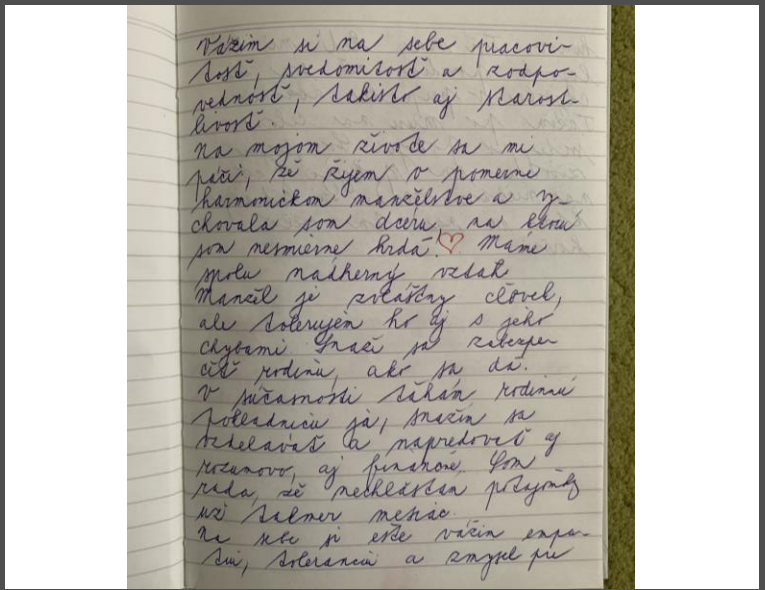 Vážim si na sebe pracovi-
tosť, svedomitosť a zodpo-
vednosť, takisto aj starost-
livosť.
Na mojom živote sa mi
páči, že žijem v pomerne
harmonickom manželstve a vy-
chovala som dcéru, na ktorú
som nesmierne hrdá! Máme
spolu nádherný vzťah
Manžel je zvláštny človek,
ale tolerujem ho aj s jeho
chybami. Snaží sa zabezpe-
čiť rodinu, ako sa dá.
V súčasnosti ťahám rodinnú
pokladnicu ja, snažím sa
vzdelávať a napredovať aj
rozumovo, aj finančne. Som
rada, že nechlastám potajomky
už takmer mesiac.
Na sebe si ešte vážim empa-
tiu, toleranciu a zmysel pre